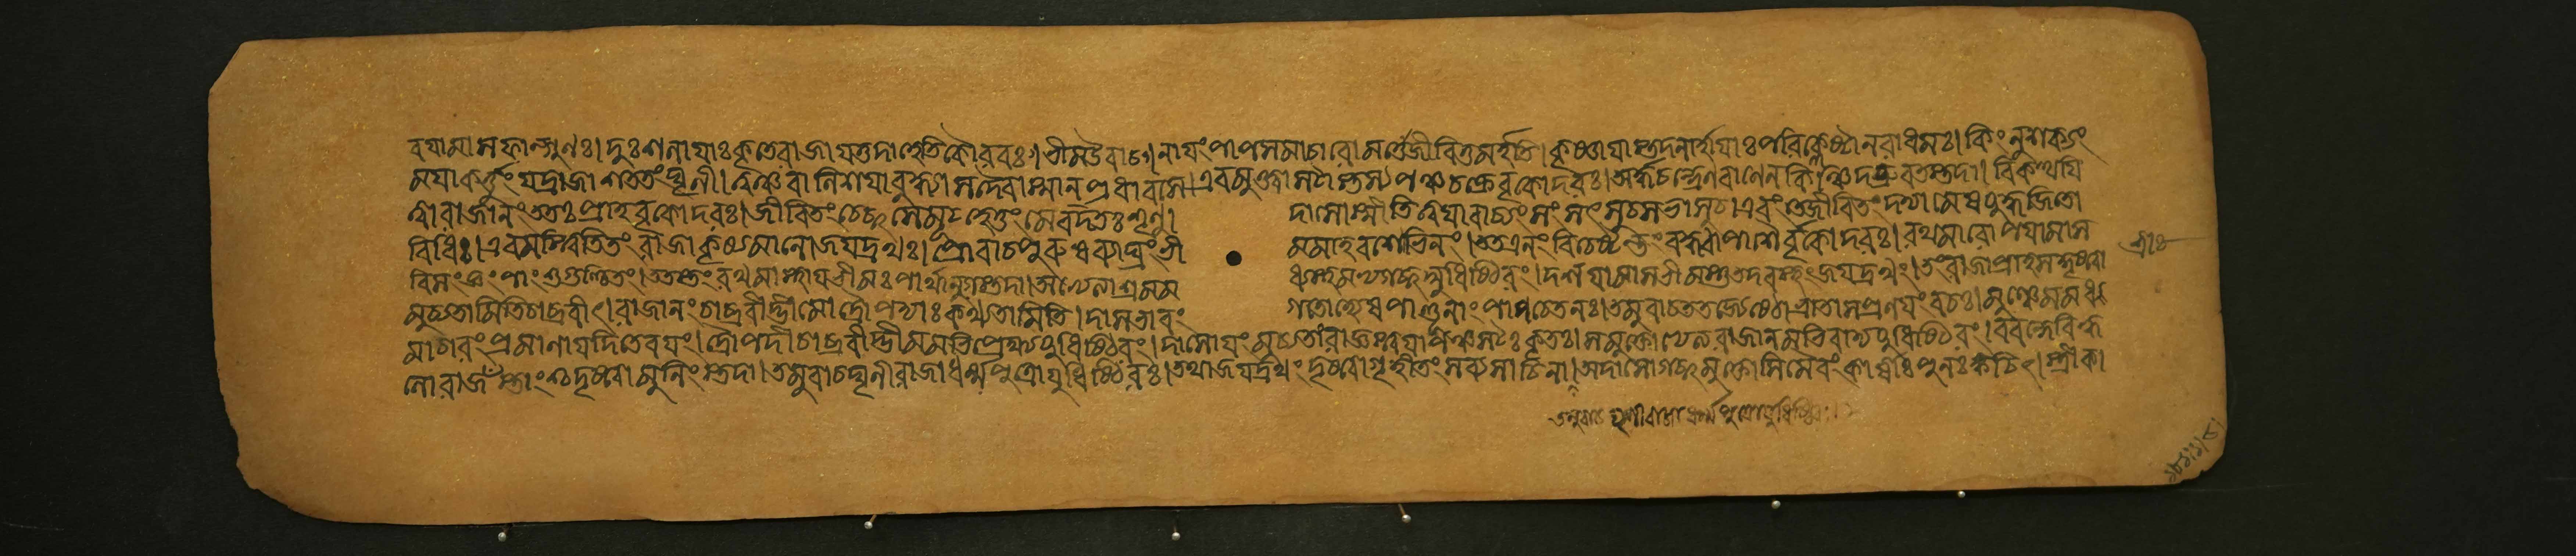 বযামাস ফাল্গুণঃ। দুঃশলাযাঃ কৃতে রাজা যত্তদাহেতি কৌরবঃ। ভীম উবাচ। নাযং পাপসমাচারো মর্ত্তো জীবিতুমর্হতি। কৃষ্ণাযাস্তদনার্হাযাঃ পরিক্লেষ্টা নরাধমঃ। কিং নু শক্যং
মযা কর্ত্তুং যদ্রাজা শততং ঘৃণী। ত্বঞ্চ বালিশযা বুদ্ধ্যা সদৈবাস্মান্ প্রধাবসে। এবমুক্ত্বা সটাস্তস্য পঞ্চ চক্রে বৃকোদরঃ। অর্দ্ধচন্দ্রেণ বাণেন কিঞ্চিদব্রুবতস্তদা। বিকত্থযি
ত্বা রাজানং ততঃ প্রাহ বৃকোদরঃ। জীবিতং চেচ্ছসে মূঢ হেতুং মে বদতঃ শৃণু। দাসোঽস্মীতি ত্বযা বাচ্যং সংসৎসু চ সভাসু চ। এবং তে জীবিতং দদ্যামেষ যুদ্ধজিতো
বিধিঃ। এবমস্ত্বিতি তং রাজা কৃষ্যমাণো জযদ্রথঃ। প্রোবাচ পুরুষব্যাঘ্রং ভী মমাহবশোভিনং। তত এনং বিচেষ্টন্তং বদ্ধ্বা পার্শ্বে বৃকোদরঃ। রথমারোপযামাস
বিসংজ্ঞং পাংশুগুণ্ঠিতং। ততস্তং রথমাস্থায ভীমঃ পার্থানুগস্তদা। অভ্যেত্যাশ্রমম ধ্যস্থমভ্যগচ্ছদ্যুধিষ্ঠিরং। দর্শযামাস ভীমস্তু তদবস্থং জযদ্রথং। তং রাজা প্রাহসদ্দৃষ্ট্বা
মুচ্যতামিতি চাব্রবীৎ। রাজানং চাব্রবীদ্ভীমো দ্রৌপদ্যাঃ কথ্যতামিতি। দাসভাবং গতো হ্যেষ পাণ্ডুনাং পাপচেতনঃ। তমুবাচ ততো জ্যেষ্ঠো ভ্রাতা সপ্রণযং বচঃ। মুঞ্চেমমধ
মাচারং প্রমাণা যদি তে বযং। দ্রৌপদী চাব্রবীদ্ভীমমভিপ্রেক্ষ্য যুধিষ্ঠিরং। দাসোযং মুচ্যতাং রাজ্ঞস্ত্বযা পঞ্চসটঃ কৃতঃ। স মুক্তোভ্যেত্য রাজানমভিবাদ্য যুধিষ্ঠিরং। ববন্দে বিহ্ব
লো রাজা তাংশ্চ দৃষ্ট্বা মুনিংস্তদা। তমুবাচ ঘৃণী রাজা ধর্ম্মপুত্রো যুধিষ্ঠিরঃ। তথা জযদ্রথং দৃষ্ট্বা গৃহীতং সব্যসাচিনা। অদাসো গচ্ছ মুক্তোসি মৈবং কার্ষীঃ পুনঃ ক্বচিৎ। স্ত্রীকা
তমুবাচ ঘৃণী রাজা ধর্ম্মপুত্রো যুধিষ্ঠিরঃ।